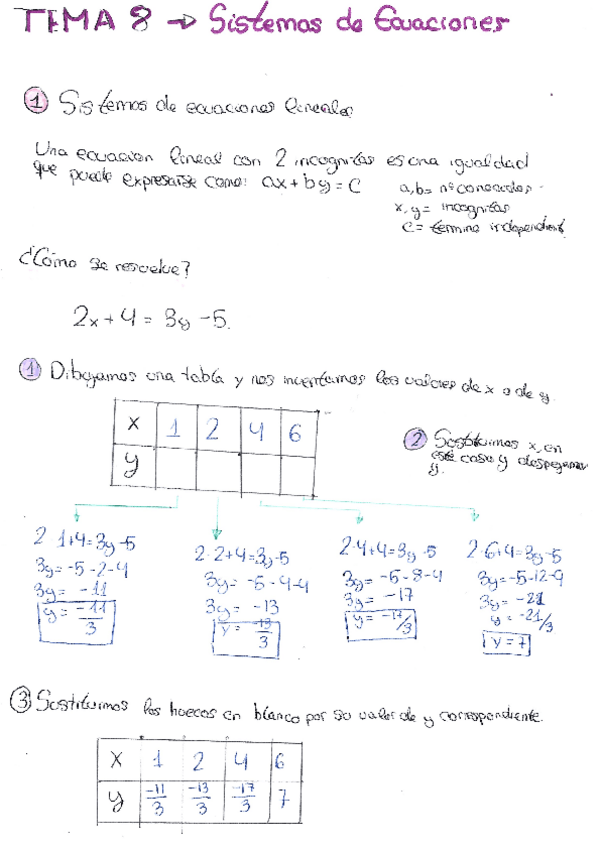 TEMA 8 → Sistemas de Ecuaciones
① Sistemas de ecuaciones lineales
Una ecuacion lineal con 2 incognitas es una igualdad
que puede expresarse como: ax + by = c
a, b = nº conocidos
x, y = incognitas
c = termino independient.
¿Cómo se resuelve?
2x + 4 = 3y - 5.
① Dibujamos una tabla y nos inventamos los valores de x o de y.
x 1 2 4 6
y
② Sustituimos x, en
este caso y despejamos
y.
2·1+4=3y-5
3y=-5-2-4
3y=-11
y=-11/3
2·2+4=3y-5
3y=-5-4-4
3y=-13
y=-13/3
2·4+4=3y-5
3y=-5-8-4
3y=-17
y=-17/3
2·6+4=3y-5
3y=-5-12-9
3y=-21
y=-21/3
y=7
③ Sustituimos los huecos en blanco por su valor de y correspondiente.
x 1 2 4 6
y -11/3 -13/3 -17/3 7